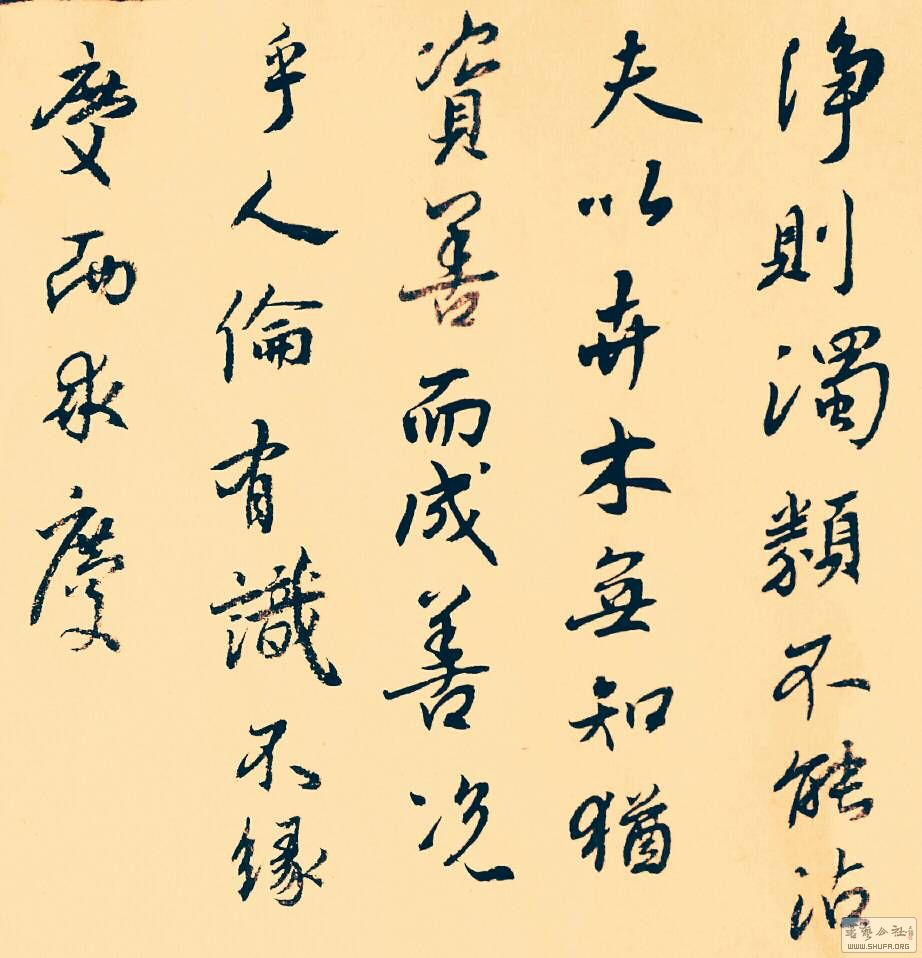 淨則濁類不能沾
夫以卉木無知猶
資善而成善況
乎人倫有識不緣
慶而求慶
WWW.SHUFA.ORG